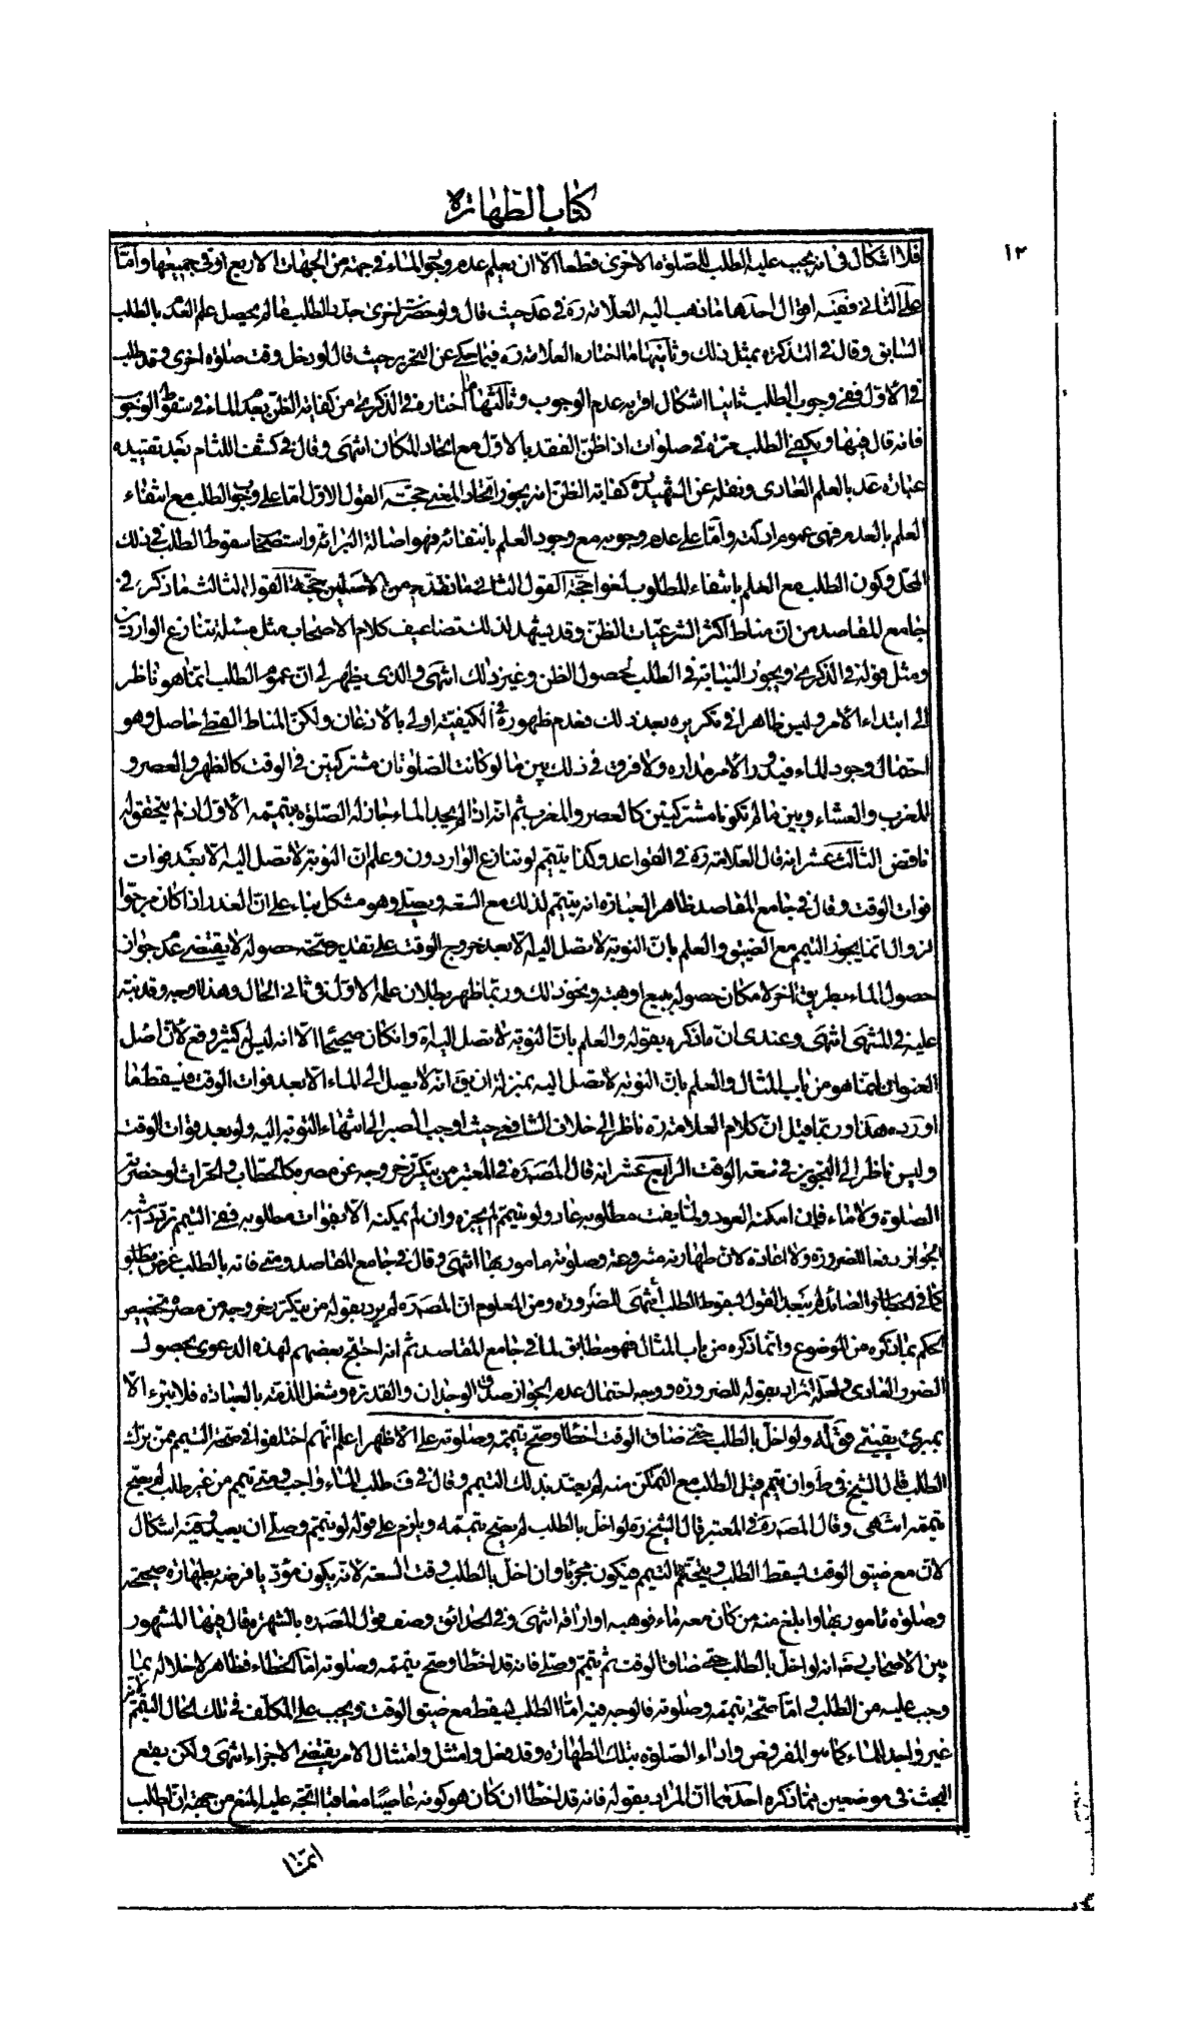 كتاب الطهارة
١٢
فلا اشكال فى انه يجب عليه الطلب للصلوة الاخرى قطعا الا ان يعلم عدم وجود الماء فى جهة من الجهات الاربع او فى جميعها وامّا
على الثانى ففيه اقوال احدها ما ذهب اليه العلامة ره فى عد حيث قال ولو حضرت اخرى جدد الطلب ما لم يحصل علم العدم بالطلب
السابق وقال فى التذكرة بمثل ذلك وثانيها ما اختاره العلامة ره فيما حكى عن التحرير حيث قال لو دخل وقت صلوة اخرى وقد طلب
فى الاول ففى وجوب الطلب ثانيا اشكال اقربه عدم الوجوب وثالثها ما اختاره فى الذكرى من كفاية الظن بعدم الماء فى سقوط الوجوب
فانه قال فيها ويكفى الطلب مرّة فى صلوات اذا ظنّ الفقد بالاول مع اتحاد المكان انتهى وقال فى كشف اللثام بعد تقييده
عبارة عد بالعلم العادى ونقله عن الشهيد ره كفاية الظن انه يجوز اتحاد المعنى حجة القول الاول امّا على وجوب الطلب مع انتفاء
العلم بالعدم فهى عموم ادلته وامّا على عدم وجوبه مع وجود العلم بانتفائه فهو اصالة البرائة واستصحاب سقوط الطلب فى ذلك
المحل وكون الطلب مع العلم بانتفاء المطلوب لغوا حجة القول الثانى ما تقدم من الاصلين حجة القول الثالث ما ذكره فى
جامع المقاصد من ان مناط اكثر الشرعيات الظنّ وقد يشهد لذلك تضاعيف كلام الاصحاب مثل مسئلة تنازع الواردين
ومثل قوله فى الذكرى ويجوز النيابة فى الطلب لحصول الظن وغير ذلك انتهى والذى يظهر لى ان عموم الطلب انما هو ناظر
الى ابتداء الامر وليس ظاهرا فى تكريره بعد ذلك فعدم ظهوره فى الكيفية اولى بالاذعان ولكن المناط القطع حاصل وهو
احتمال وجود الماء فيدور الامر مداره ولا فرق فى ذلك بين ما لو كانت الصلوتان مشتركتين فى الوقت كالظهر والعصر و
المغرب والعشاء وبين ما لم تكونا مشتركتين كالعصر والمغرب ثم انه اذا لم يجد الماء جاز له الصلوة بتيممه الاول اذ لم يتحقق له
ناقض الثالث عشر انه قال العلامة ره فى القواعد وكذا يتيمم لو تنازع الواردون وعلم ان النوبة لا تصل اليه الا بعد فوات
فوات الوقت وقال فى جامع المقاصد ظاهر العبارة انه يتيمم لذلك مع السعة ويصلى وهو مشكل بناء على ان العذر اذا كان مرجوا
لزوال انما يجوز التيمم مع الضيق والعلم بان النوبة لا تصل اليه الا بعد خروج الوقت على تقدير صحة حصوله لا يقتضى عدم جواز
حصول الماء بطريق اخر لامكان حصوله ببيع او هبة ونحو ذلك وربما ظهر بطلان علمه الاول فى ثانى الحال وهذا وجه وقد نبّه
عليه فى المنتهى انتهى وعندى ان ما ذكره بقوله والعلم بان النوبة لا تصل اليه اه وان كان صحيحا الا انه ليس له كثير وقع لان اصل
العنوان انما هو من باب المثال والعلم بان النوبة لا تصل اليه بمنزلة ان يق انه لا يصل الى الماء الا بعد فوات الوقت فيسقط ما
اورده هذا وربما قيل ان كلام العلامة ره ناظر الى خلاف الشافعى حيث اوجب الصبر الى انتهاء النوبة اليه ولو بعد فوات الوقت
وليس ناظر الى التجويز فى سعة الوقت الرابع عشر انه قال المص ره فى المعتبر من يتكرر خروجه عن مصره كالحطاب والحراث لو حضرته
الصلوة ولا ماء فان امكنه العود ولما يفت مطلوبه عاد ولو تيمم لم يجزه وان لم يمكنه الا بفوات مطلوبه ففى التيمم تردد اشبهه
الجواز دفعا للضرورة ولا اعادة لان طهارته مشروعة وصلوته مامور بها انتهى وقال فى جامع المقاصد ومتى فاته بالطلب غرض مطلوب
كما فى الحطاب والصائد لم يبعد القول بسقوط الطلب انتهى للضرورة ومن المعلوم ان المص ره لم يرد بقوله من يتكرر خروجه من مصره تخصيص
الحكم بما ذكره من الموضوع وانما ذكره من باب المثال فهو مطابق لما فى جامع المقاصد ثم انه احتج بعضهم لهذه الدعوى بحصول
الضرر العادى ولعله اراد بقوله للضرورة ووجه احتمال عدم الجواز صدق الوجدان والقدرة وشغل الذمة بالعبادة فلا يبرء الا
بمبرئ يقينى قوله ولو اخل بالطلب حتى ضاق الوقت اخطا وصح تيممه وصلوته على الاظهر اعلم انهم اختلفوا فى صحة التيمم ممن ترك
الطلب قال الشيخ فى ط وان تيمم قبل الطلب مع التمكن منه لم يعتد بذلك التيمم وقال فى ف طلب الماء واجب ومتى تيمم من غير طلب لم يصح
تيممه انتهى وقال المص ره فى المعتبر قال الشيخ ره لو اخل بالطلب لم يصح تيممه ويلزم على قوله لو تيمم وصلى ان يعيد وفيه اشكال
لان مع ضيق الوقت يسقط الطلب ويتحتم التيمم فيكون مجزيا وان اخل بالطلب وقت السعة لانه يكون مؤديا فرضه بطهارة صحيحة
وصلوة مامور بها وابلغ منه من كان معه ماء فوهبه او اراقه انتهى وفى الحدائق وصف قول المص ره بالشهرة وقال فيها المشهور
بين الاصحاب رض انه لو اخل بالطلب حتى ضاق الوقت ثم تيمم وصلى فانه قد اخطا وصح تيممه وصلوته امّا الخطاء فظاهر لاخلاله بما
وجب عليه من الطلب وامّا صحة تيممه وصلوته فالوجه فيه ان الطلب يسقط مع ضيق الوقت ويجب على المكلف فى تلك الحال التيمم لانه
غير واجد للماء كما هو المفروض واداء الصلوة بتلك الطهارة وقد فعل وامتثل وامتثال الامر يقتضى الاجزاء انتهى ولكن يقع
البحث فى موضعين مما ذكره احدهما ان المراد بقوله فانه قد اخطا ان كان هو كونه عاصيا معاقبا اتجه عليه المنع من جهة ان الطلب
انما